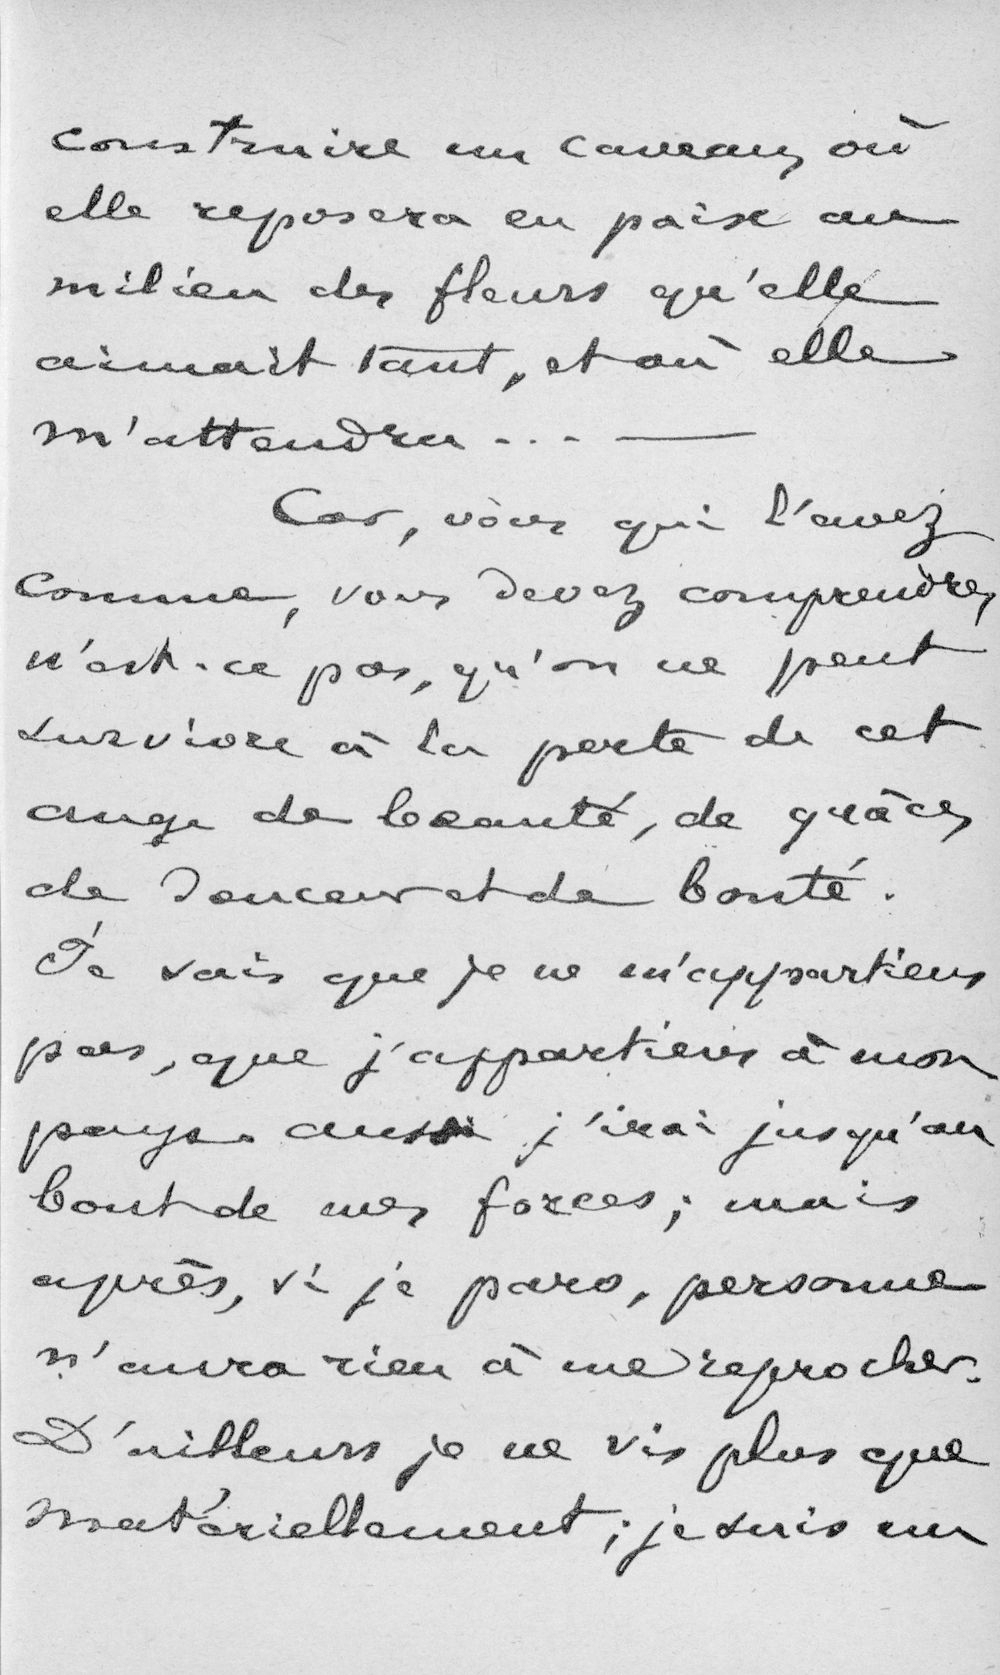 construire un caveau, où
elle reposera en paix au
milieu des fleurs qu'elle
aimait tant, et où elle
m'attendra... —
Car, vous qui l'avez
connue, vous devez comprendre,
n'est-ce pas, qu'on ne peut
survivre à la perte de cet
ange de beauté, de grâce,
de douceur et de bonté.
Je sais que je ne m'appartiens
pas, que j'appartiens à mon
pays. aussi j'irai jusqu'au
bout de mes forces; mais
après, si je pars, personne
n'aura rien à me reprocher.
D'ailleurs je ne vis plus que
matériellement; je suis un